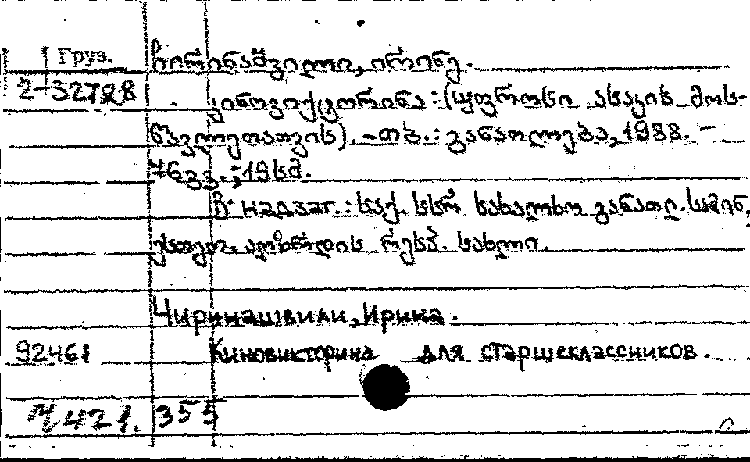 Груз. ჩირინაშვილი, ირინე.
2-32728 კინოვიქტორინა: (უფროსი ასაკის მოს-
წავლეთათვის). -თბ.: განათლება, 1988. -
76გვ.; 19სმ.
В надзаг.: საქ. სსრ სახალხო განათლ. სამინ.,
ესთეტ. აღზრდის რესპ. სახლი.
Чиринашвили, Ирина.
92461 Киновикторина для старшеклассников.
421. 355